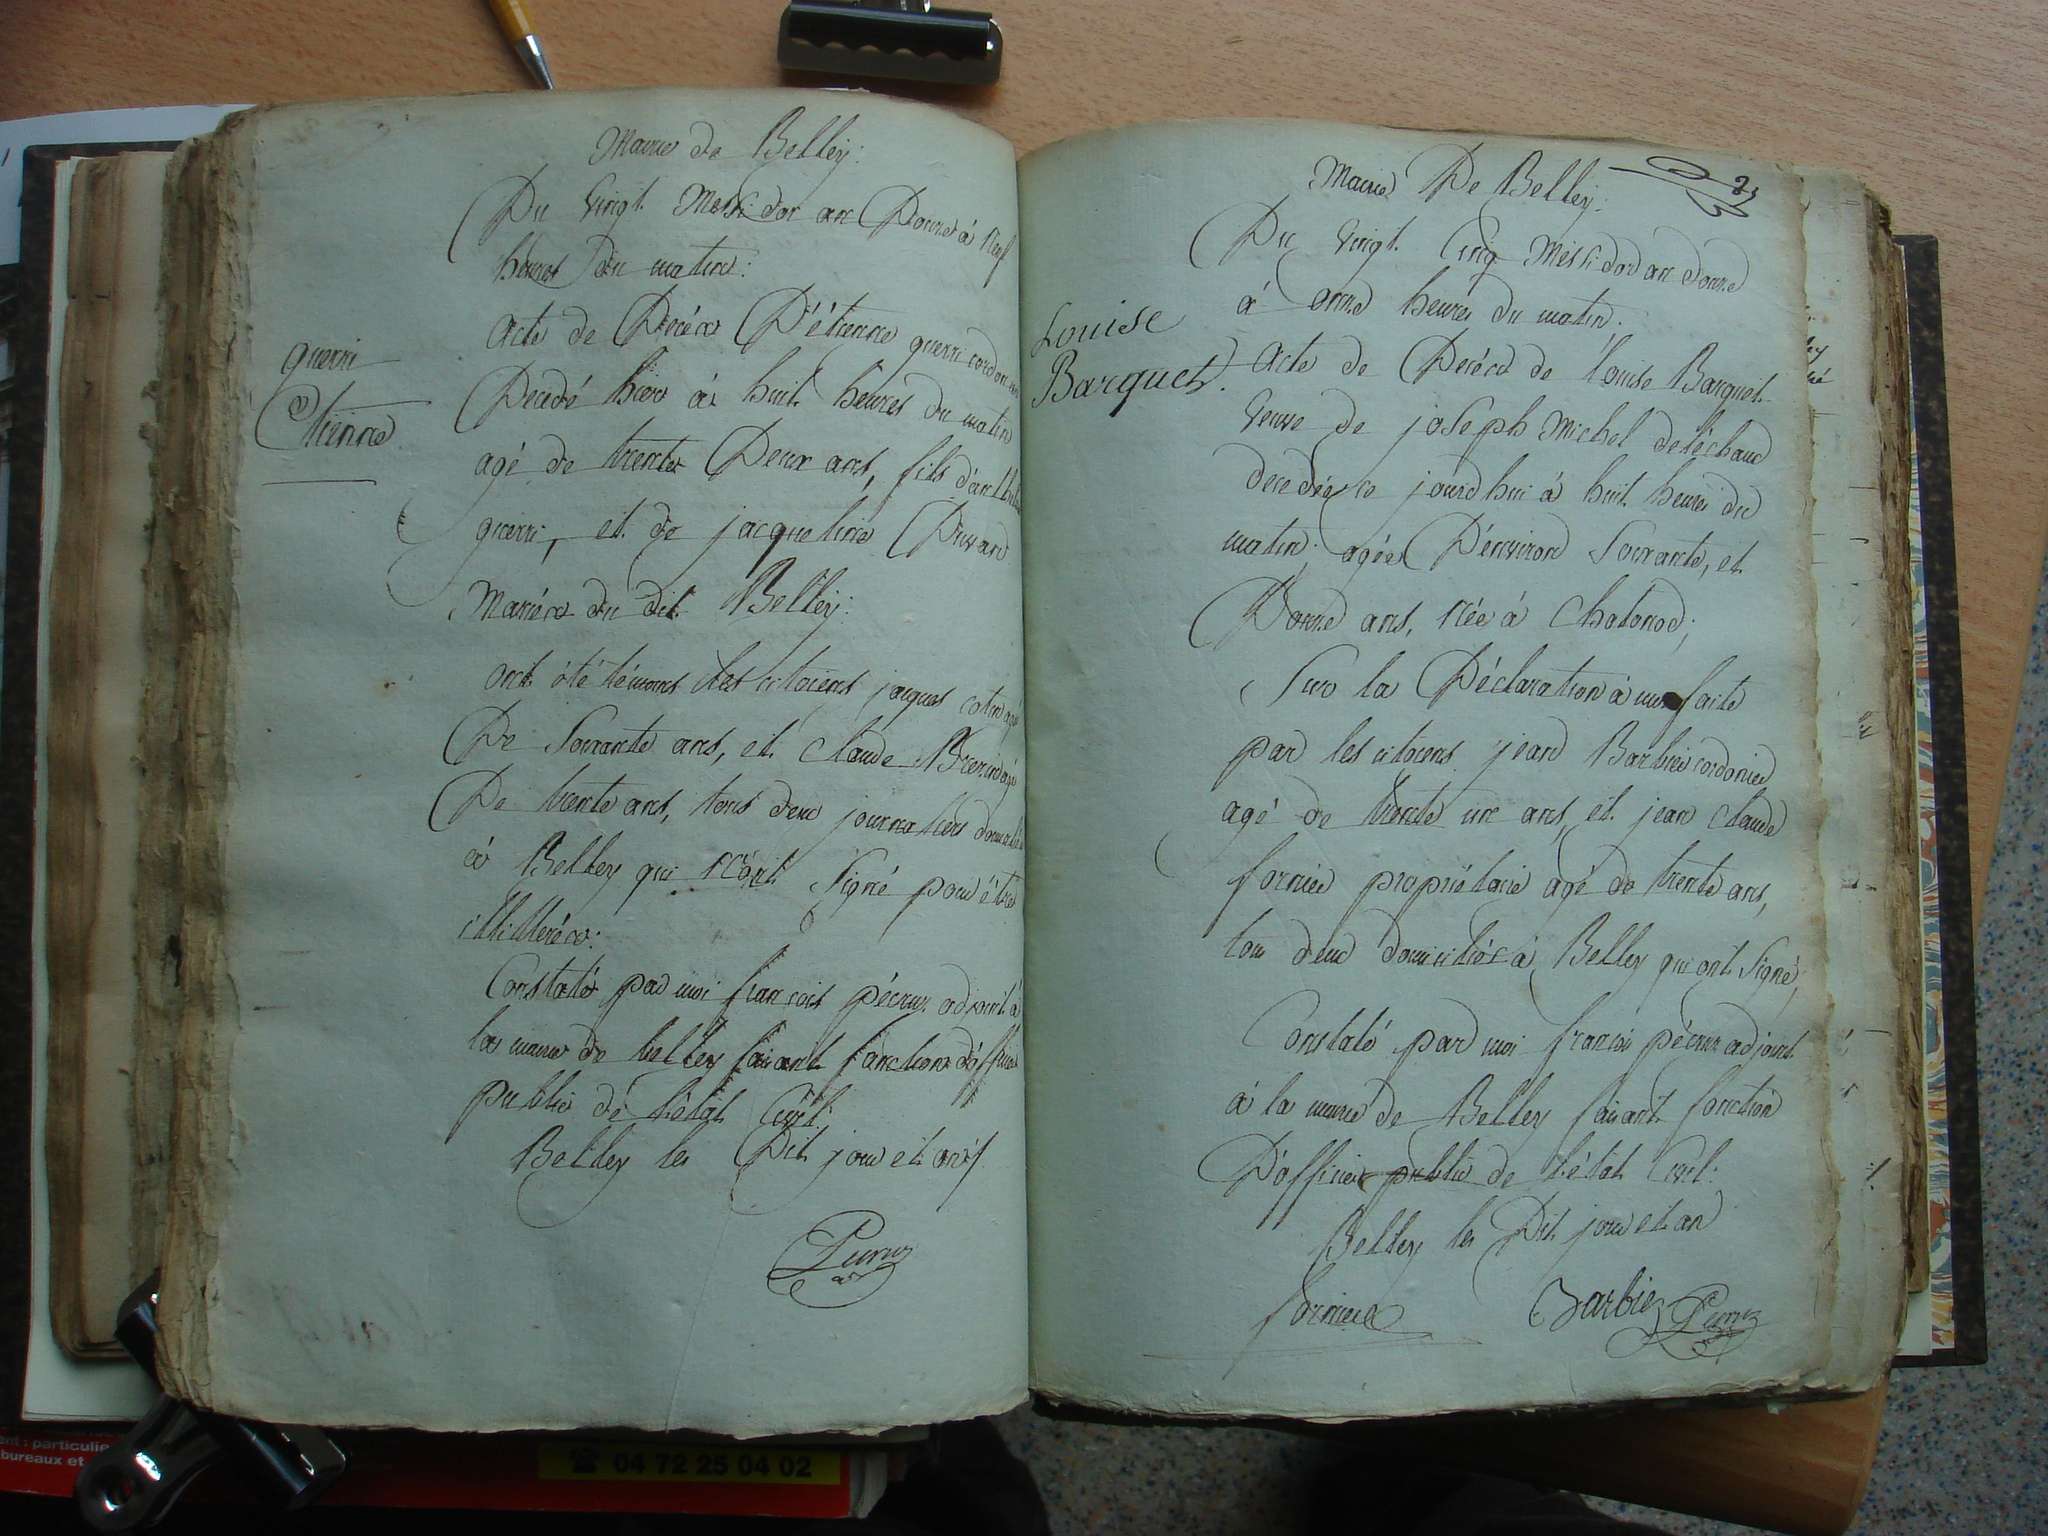 Mairie de Belley:
Du Vingt Messidor an Douze à neuf
heures du matin:
guerri
Etienne
acte de Décès D'étienne guerri cordonnier
Décédé hier à huit heures du matin
agé de trente Deux ans, fils d'anthelme
guerri, et de jacqueline Duvand
Mariés du dit Belley:
ont été témoins les citoiens jaques cotin agé
De Soixante ans, et Claude agé
De trente ans, tous deux journaliers domiciliés
à Belley qui n'ont Signé pour être
illittérés:
Constaté par moi françois pécruz adjoint à
la mairie de belley faisant fonction d'officier
public de l'état Civil:
Belley les Dit jour et an
Pécruz
Mairie De Belley:
23
Du Vingt Cinq Messidor an douze
à onze heures du matin:
Louise
Barquet.
acte de Décés de Louise Barquet
Veuve de joseph Michel deléchaud
decedée ce jourdhui à huit heures du
matin, agée D'environ Soixante, et
Douze ans, née à Chatonod;
Sur la Déclaration à moi faite
par les citoiens jean Barbier cordonier
agé de trente un ans, et jean Claude
fornier propriétaire agé de trente ans,
tous deux domiciliés à Belley qui ont Signé;
Constaté par moi françois pécruz adjoint
à la mairie de Belley faisant fonction
D'officier public de l'état Civil:
Belley les Dit jour et an
fornier Barbier Pécruz
particulie
bureaux et
04 72 25 04 02